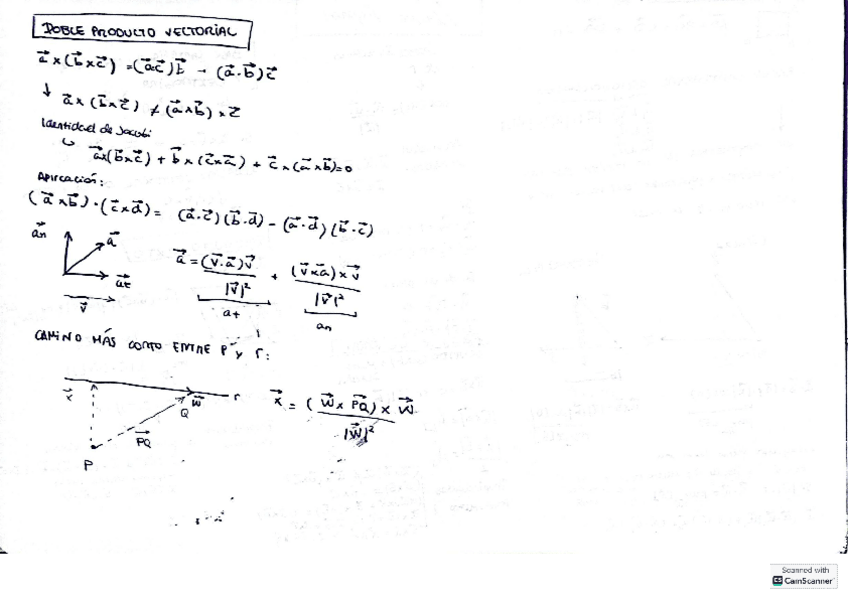 DOBLE PRODUCTO VECTORIAL
a⃗ x (b⃗ x c⃗) = (a⃗c⃗)b⃗ - (a⃗·b⃗)c⃗
↓ a⃗ x (b⃗ x c⃗) ≠ (a⃗ x b⃗) x c⃗
Identidad de Jacobi
↳ a⃗x(b⃗xc⃗) + b⃗ x (c⃗xa⃗) + c⃗ x (a⃗ x b⃗)=0
Aplicación:
(a⃗ x b⃗) · (c⃗ x d⃗) = (a⃗·c⃗)(b⃗·d⃗) - (a⃗·d⃗)(b⃗·c⃗)
a⃗n a⃗ a⃗t v⃗
a⃗ = (v⃗·a⃗)v⃗ / |v⃗|² + (v⃗xa⃗) x v⃗ / |v⃗|²
at an
CAMINO MÁS CORTO ENTRE P y r:
x⃗ w⃗ r Q PQ⃗ P
x⃗ = (w⃗ x PQ⃗) x w⃗ / |w⃗|²
Scanned with
CS CamScanner